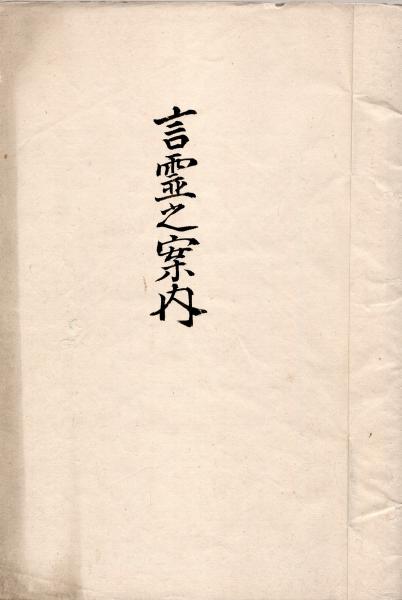 言霊之案内